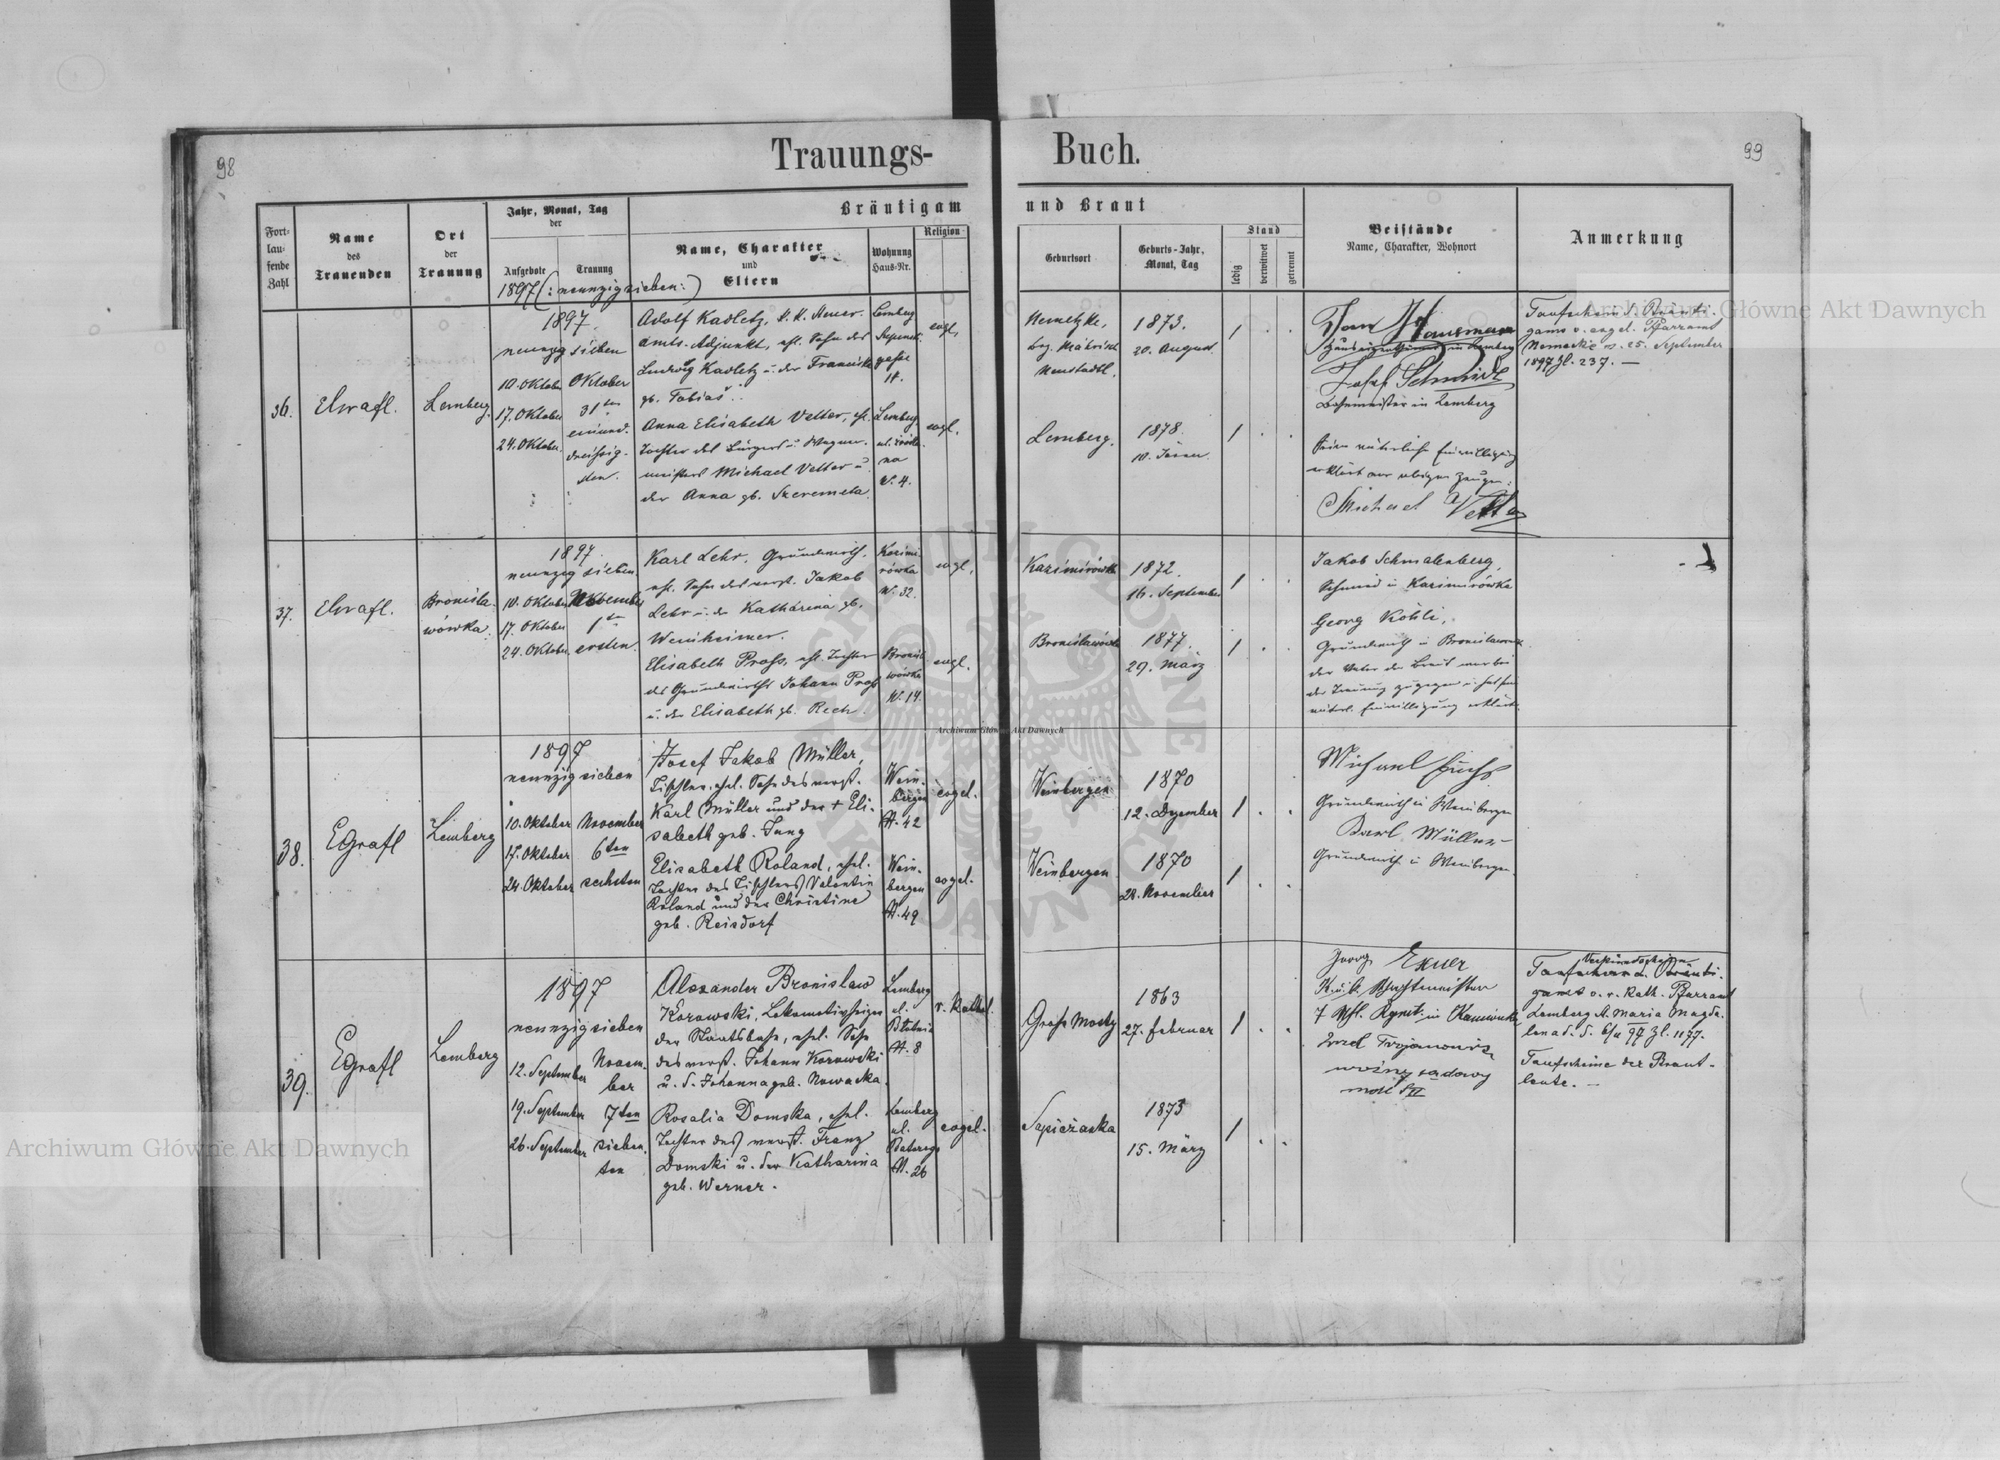 98
Trauungs-
Buch.
99
Bräutigam
und Braut
Fort-
lau-
fende
Zahl
Name
des
Trauenden
Ort
der
Trauung
Jahr, Monat, Tag
der
Aufgebote
Trauung
Name, Charakter
und
Eltern
Wohnung
Haus-Nr.
Religion
Geburtsort
Geburts-Jahr,
Monat, Tag
Stand
ledig
verwitwet
getrennt
Beistände
Name, Charakter, Wohnort
Anmerkung
1897 (: neunzig sieben :)
36.
Lemberg.
1897.
neunzig sieben
10. Oktober
17. Oktober
24. Oktober
Oktober
31ten
einund-
dreissig-
sten.
Adolf Kadletz, k. k. Steuer-
amts-Adjunkt, ehl. Sohn des
Ludwig Kadletz u. der Franciska
gb. Tobiaš.
Anna Elisabeth Vetter, ehl.
Tochter des Bürgers u. Wagner-
meisters Michael Vetter u.
der Anna gb. Szeremeta.
Lemberg
gasse
Lemberg
N. 4.
evgl.
evgl.
Nemetzke,
bez. Mährisch
Neustadtl.
Lemberg.
1873.
20. August
1878.
Josef Schmidt
in Lemberg
Seine väterliche Einwilligung
erklärt vor obigen Zeugen:
Michael Vetter
Taufschein d. Bräuti-
gams v. evgel. Pfarramt
Nemecké v. 25. September
1897 Zl. 237. —
37.
Bronisła-
wówka.
1897.
neunzig sieben.
10. Oktober
17. Oktober
24. Oktober
November
1ten
ersten.
Karl Lehr, Grundwirth,
ehl. Sohn des verst. Jakob
Lehr u. der Katharina gb.
Weinheimer.
Elisabeth Pross, ehl. Tochter
des Grundwirths Johann Pross
u. der Elisabeth gb. Rech.
Kazimi-
rówka
N. 32.
Bronisła-
wówka
N. 14.
evgl.
evgl.
Kazimirówka
Bronisławówka
1872.
16. September
1877.
29. März
Jakob Schmalenberg,
Schmied in Kazimirówka
Georg Köhli,
Grundwirth in Bronisławówka
der Vater der Braut war bei
der Trauung zugegen u. hat seine
väterl. Einwilligung erklärt.
38.
EGrafl
Lemberg
1897
neunzig sieben
10. Oktober
17. Oktober
24. Oktober
November
6ten
sechsten
Josef Jakob Müller,
Tischler, ehel. Sohn des verst.
Karl Müller und der + Eli-
sabeth geb. Jung
Elisabeth Roland, ehel.
Tochter des Tischlers Valentin
Roland und der Christine
geb. Reisdorf
Wein-
bergen
N. 42
Wein-
bergen
N. 49
evgel.
evgel.
Weinbergen
Weinbergen
1870
12. Dezember
1870
28. November
Michael Fuchs
Grundwirth in Weinbergen
Karl Müller
Grundwirth in Weinbergen.
39.
EGrafl
Lemberg
1897
neunzig sieben
12. September
19. September
26. September
Novem-
ber
7ten
sieben-
ten
Alexander Bronislaw
Korowski, Lokomotivheizer
der Staatsbahn, ehel. Sohn
des verst. Johann Korowski
u. d. Johanna geb. Nowacka.
Rosalia Domska, ehel.
Tochter des verst. Franz
Domski u. der Katharina
geb. Werner.
Lemberg
ul.
N. 8
Lemberg
ul.
Batorego
N. 26
r. kathol.
evgel.
Gross Mosty
Sapieżanka
1863
27. Februar
1873
15. März
Georg Exner
K. u. k. Wachtmeister
woźny sądowy
Verkündschein
Taufschein d. Bräuti-
gams v. r. kath. Pfarramt
Lemberg St. Maria Magda-
lena d. d. 6/11 97 Zl. 1177.
Taufscheine der Braut-
leute. —
Archiwum Główne Akt Dawnych
Archiwum Główne Akt Dawnych
Archiwum Główne Akt Dawnych
ARCHIWUM GŁÓWNE AKT DAWNYCH